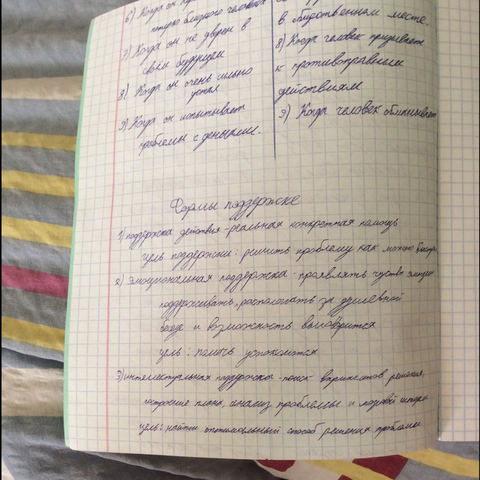 6) Когда он
близкого человека
7) Когда он не уверен в
своём будущем
8) Когда он очень сильно
устал
9) Когда он испытывает
проблемы с деньгами.
в общественном месте
8) Когда человек призывает
к противоправным
действиям
9) Когда человек обманывает
Формы поддержке
1) поддержка действия - реальная конкретная помощь
цель поддержки: решить проблему как можно быстрее
2) Эмоциональная поддержка - проявлять
поддерживать, располагать за душевной
и возможность выговорится
цель: помочь успокоиться
3) интеллектуальная поддержка - поиск вариантов решения,
построение плана, анализ проблемы и
цель: найти оптимальный способ решения проблемы